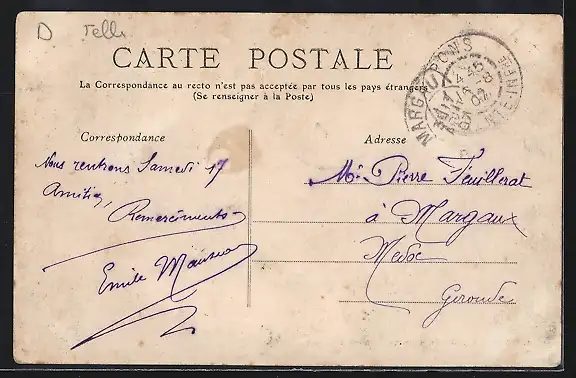 D Tells
CARTE POSTALE
La Correspondance au recto n'est pas acceptée par tous les pays étrangers
(Se renseigner à la Poste)
MARGAUX PONS
4 45
07
Correspondance
Adresse
Nous rentrons Samedi 17
Amitiés,
Remerciements
Emile
Mr Pierre Feuillerat
à Margaux
Medoc
Gironde